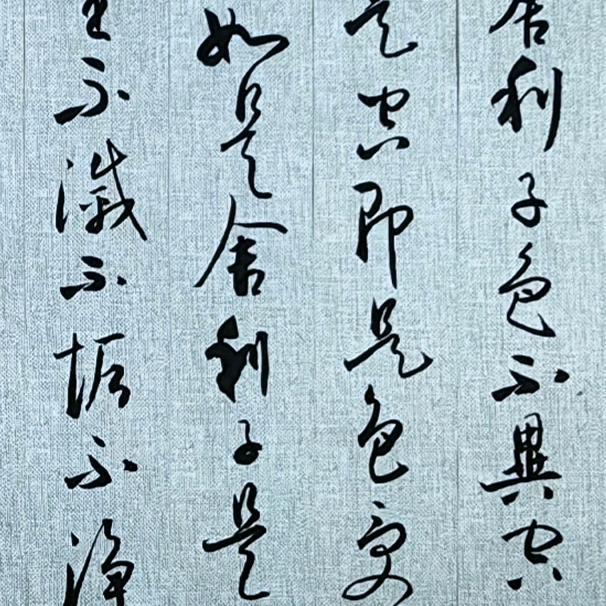 舍利子色不異空
是空即是色受
如是舍利子是
生不滅不垢不淨